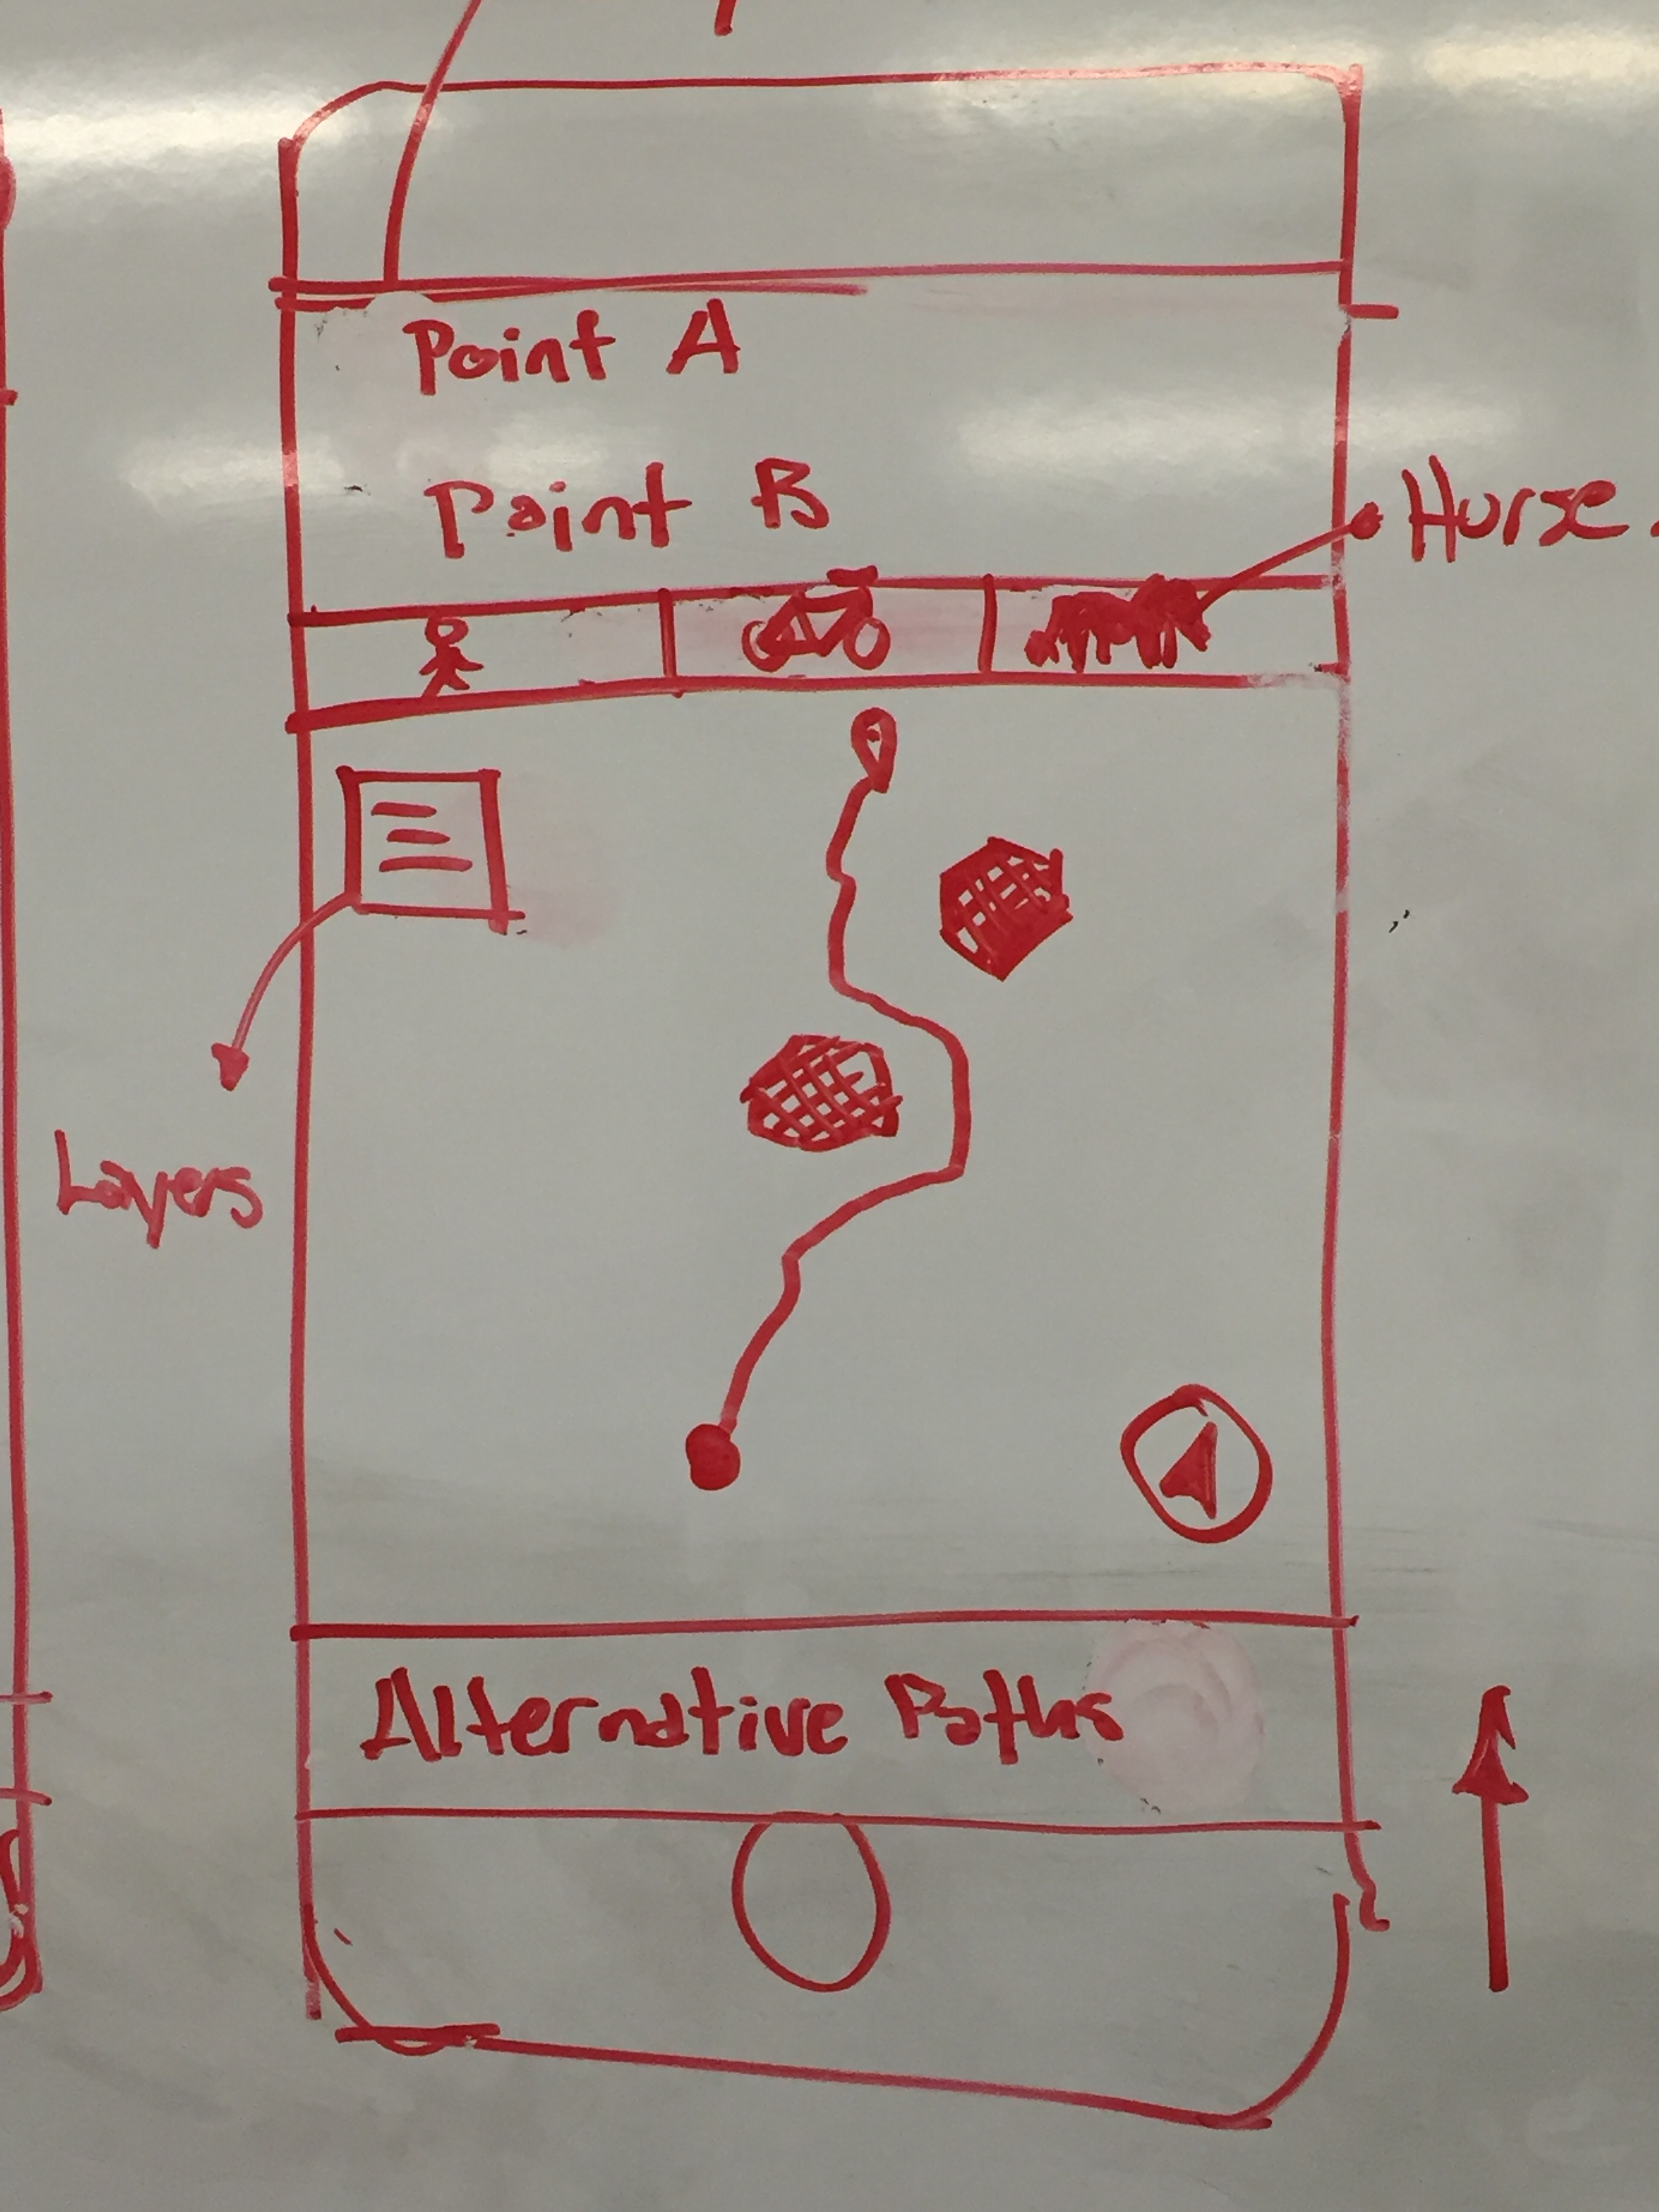 Point A
Point B
Horse
Layers
Alternative Paths